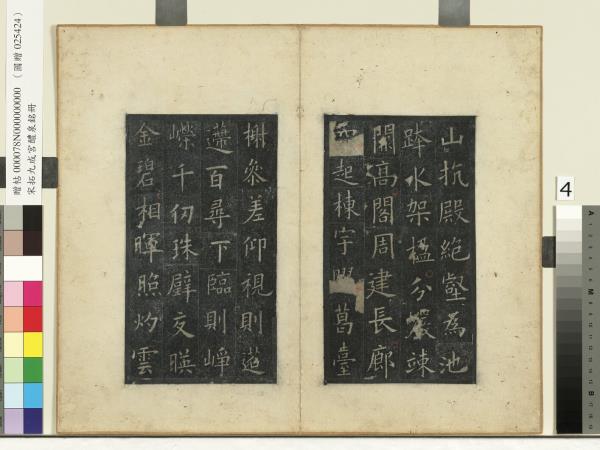 贈帖 000078N000000000 （國贈 025424）
宋拓九成宮醴泉銘冊
4
山抗殿絕壑為池
跨水架楹分巖竦
闕高閣周建長廊
四起棟宇膠葛臺
榭參差仰視則迢
遰百尋下臨則崢
嶸千仞珠璧交暎
金碧相暉照灼雲
A
M
B